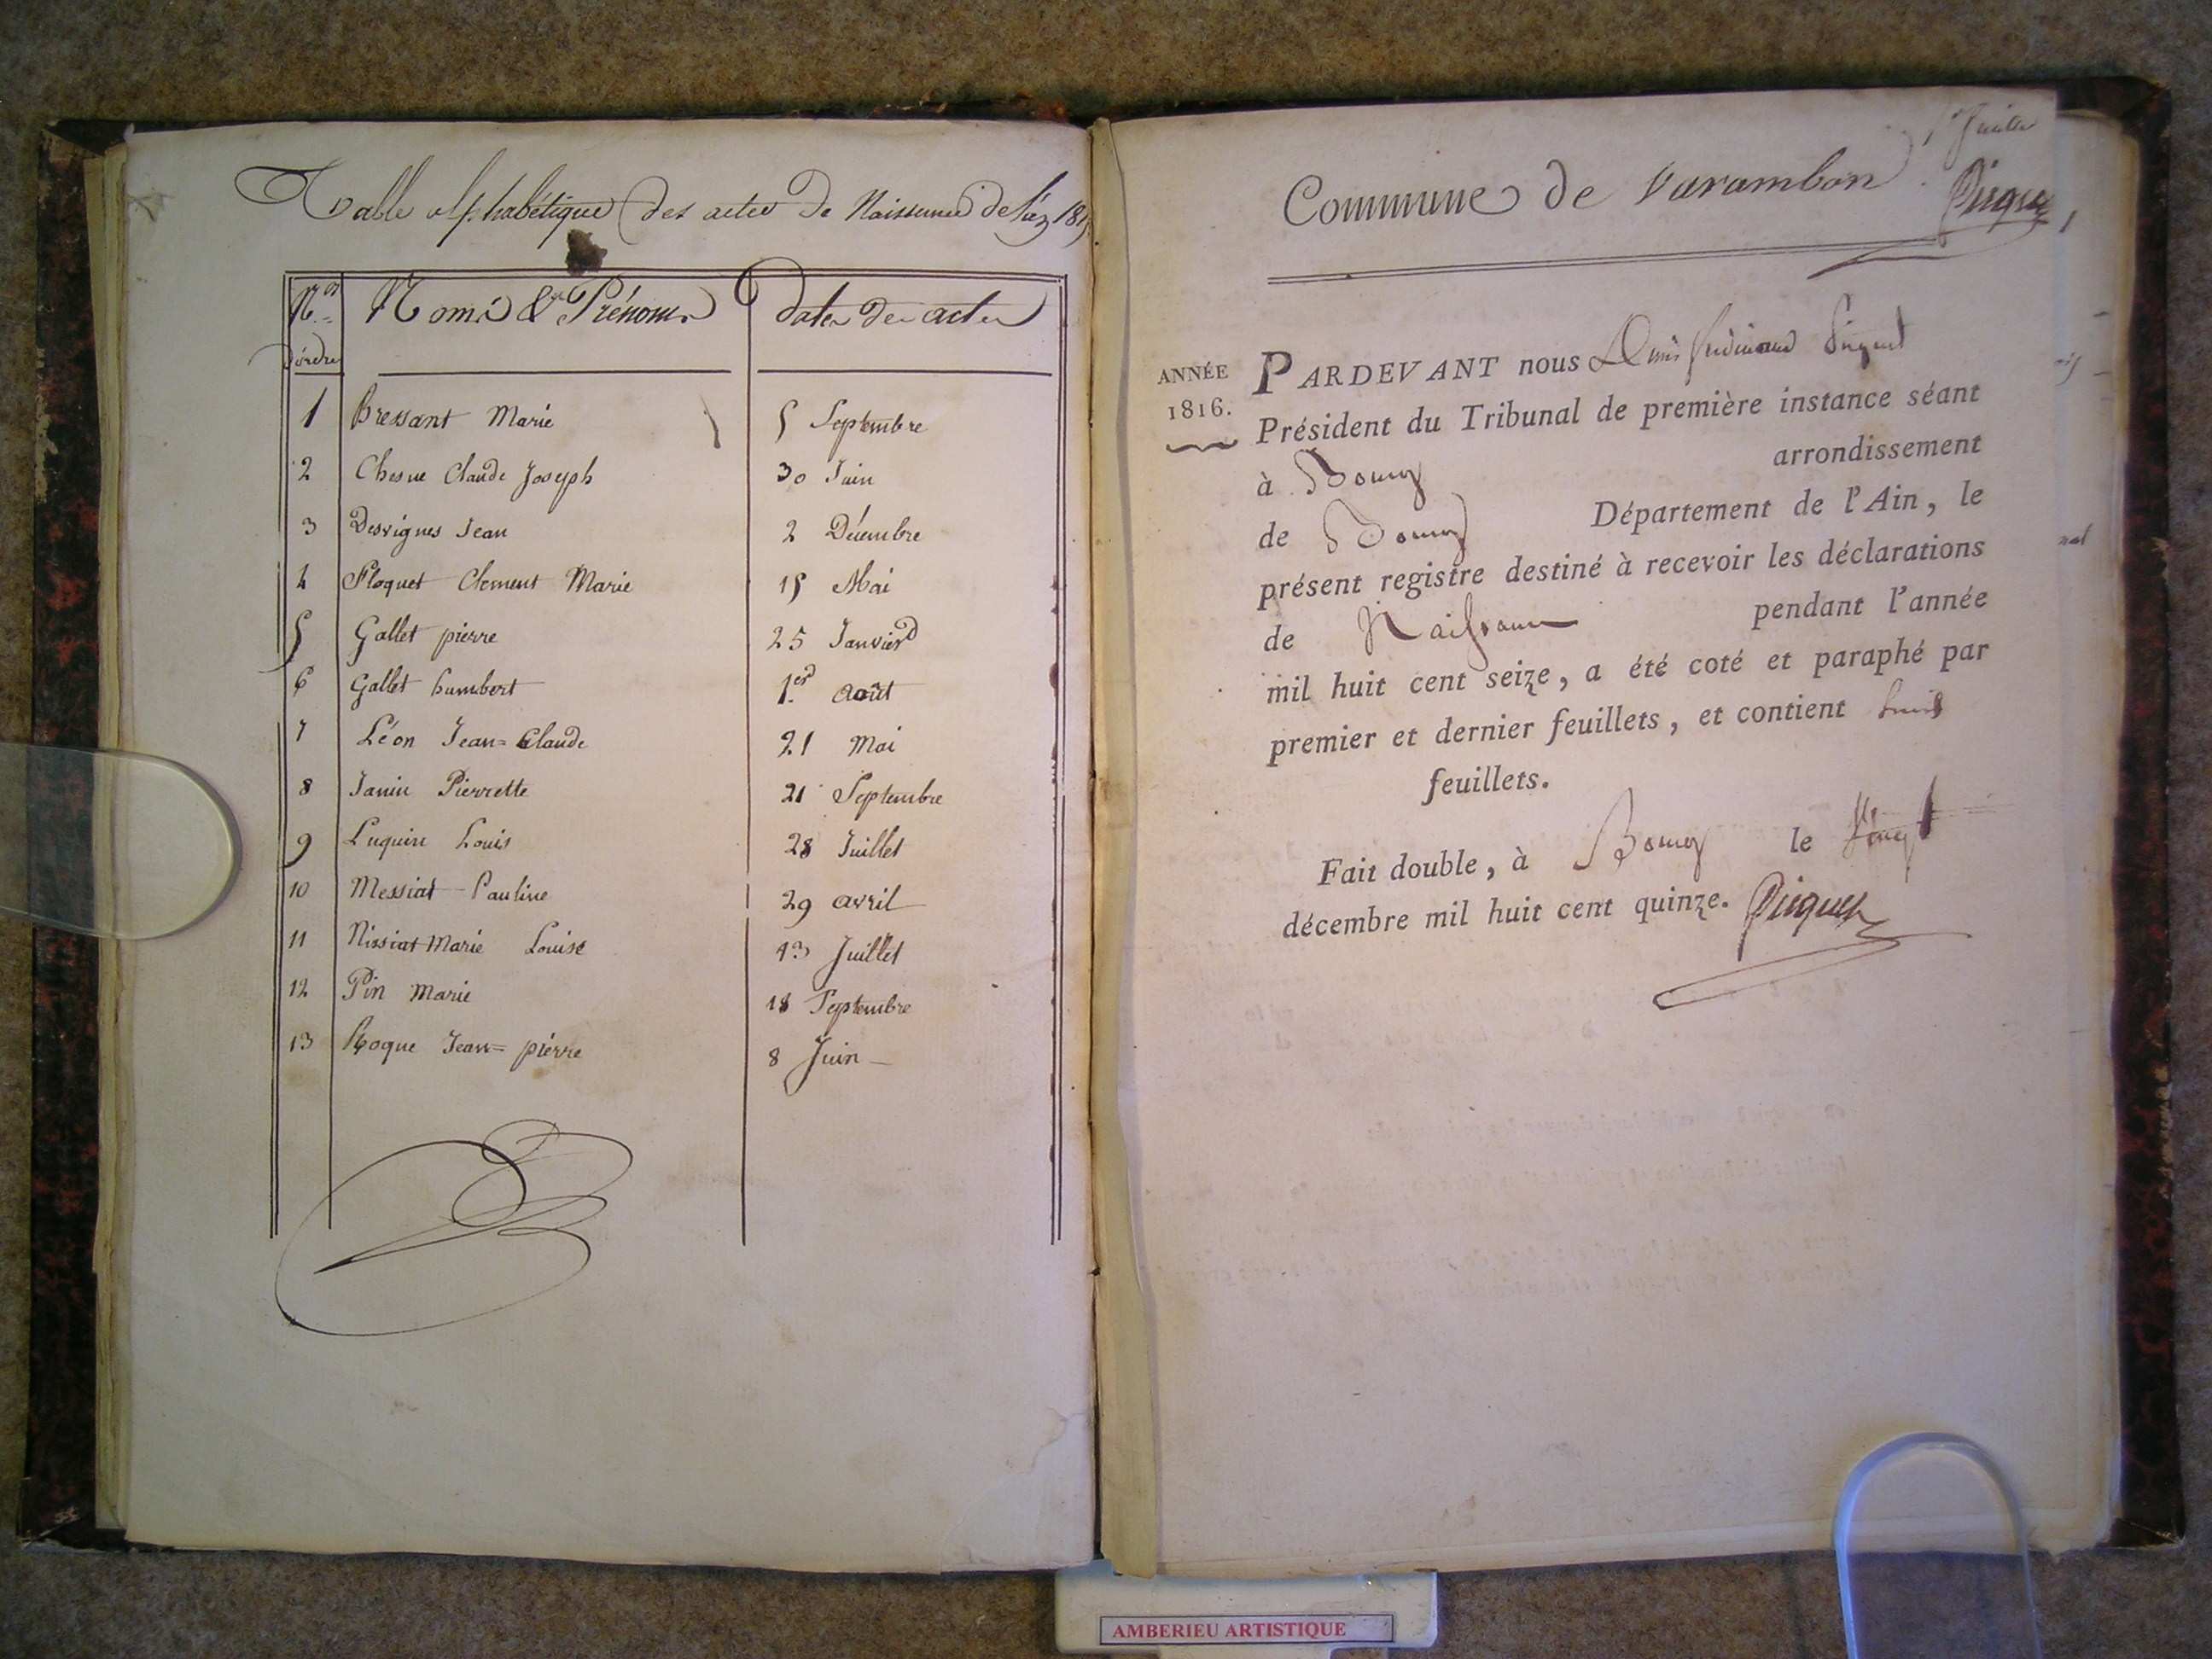 Table alphabétique des actes de Naissance de l'an 181
Nos d'ordre
Noms & Prénoms
dates des actes
1 Bressant Marie 5 Septembre
2 Chesne Claude Joseph 30 Juin
3 Desvignes Jean 2 Décembre
4 Floquet Clement Marie 15 Mai
5 Gallet pierre 25 Janvier
6 Gallet humbert 1er août
7 Léon Jean=Claude 21 Mai
8 Janin Pierrette 21 Septembre
9 Luquin Louis 28 Juillet
10 Messiat Pauline 29 avril
11 Nissiat Marie Louise 13 Juillet
12 Pin Marie 18 Septembre
13 Roque Jean=pierre 8 Juin
Commune de Varambon
Picquet
ANNÉE
1816.
PARDEVANT nous
Président du Tribunal de première instance séant
à Bourg arrondissement
de Bourg Département de l'Ain, le
présent registre destiné à recevoir les déclarations
de Naissance pendant l'année
mil huit cent seize, a été coté et paraphé par
premier et dernier feuillets, et contient huit
feuillets.
Fait double, à Bourg le vingt
décembre mil huit cent quinze. Picquet
AMBERIEU ARTISTIQUE